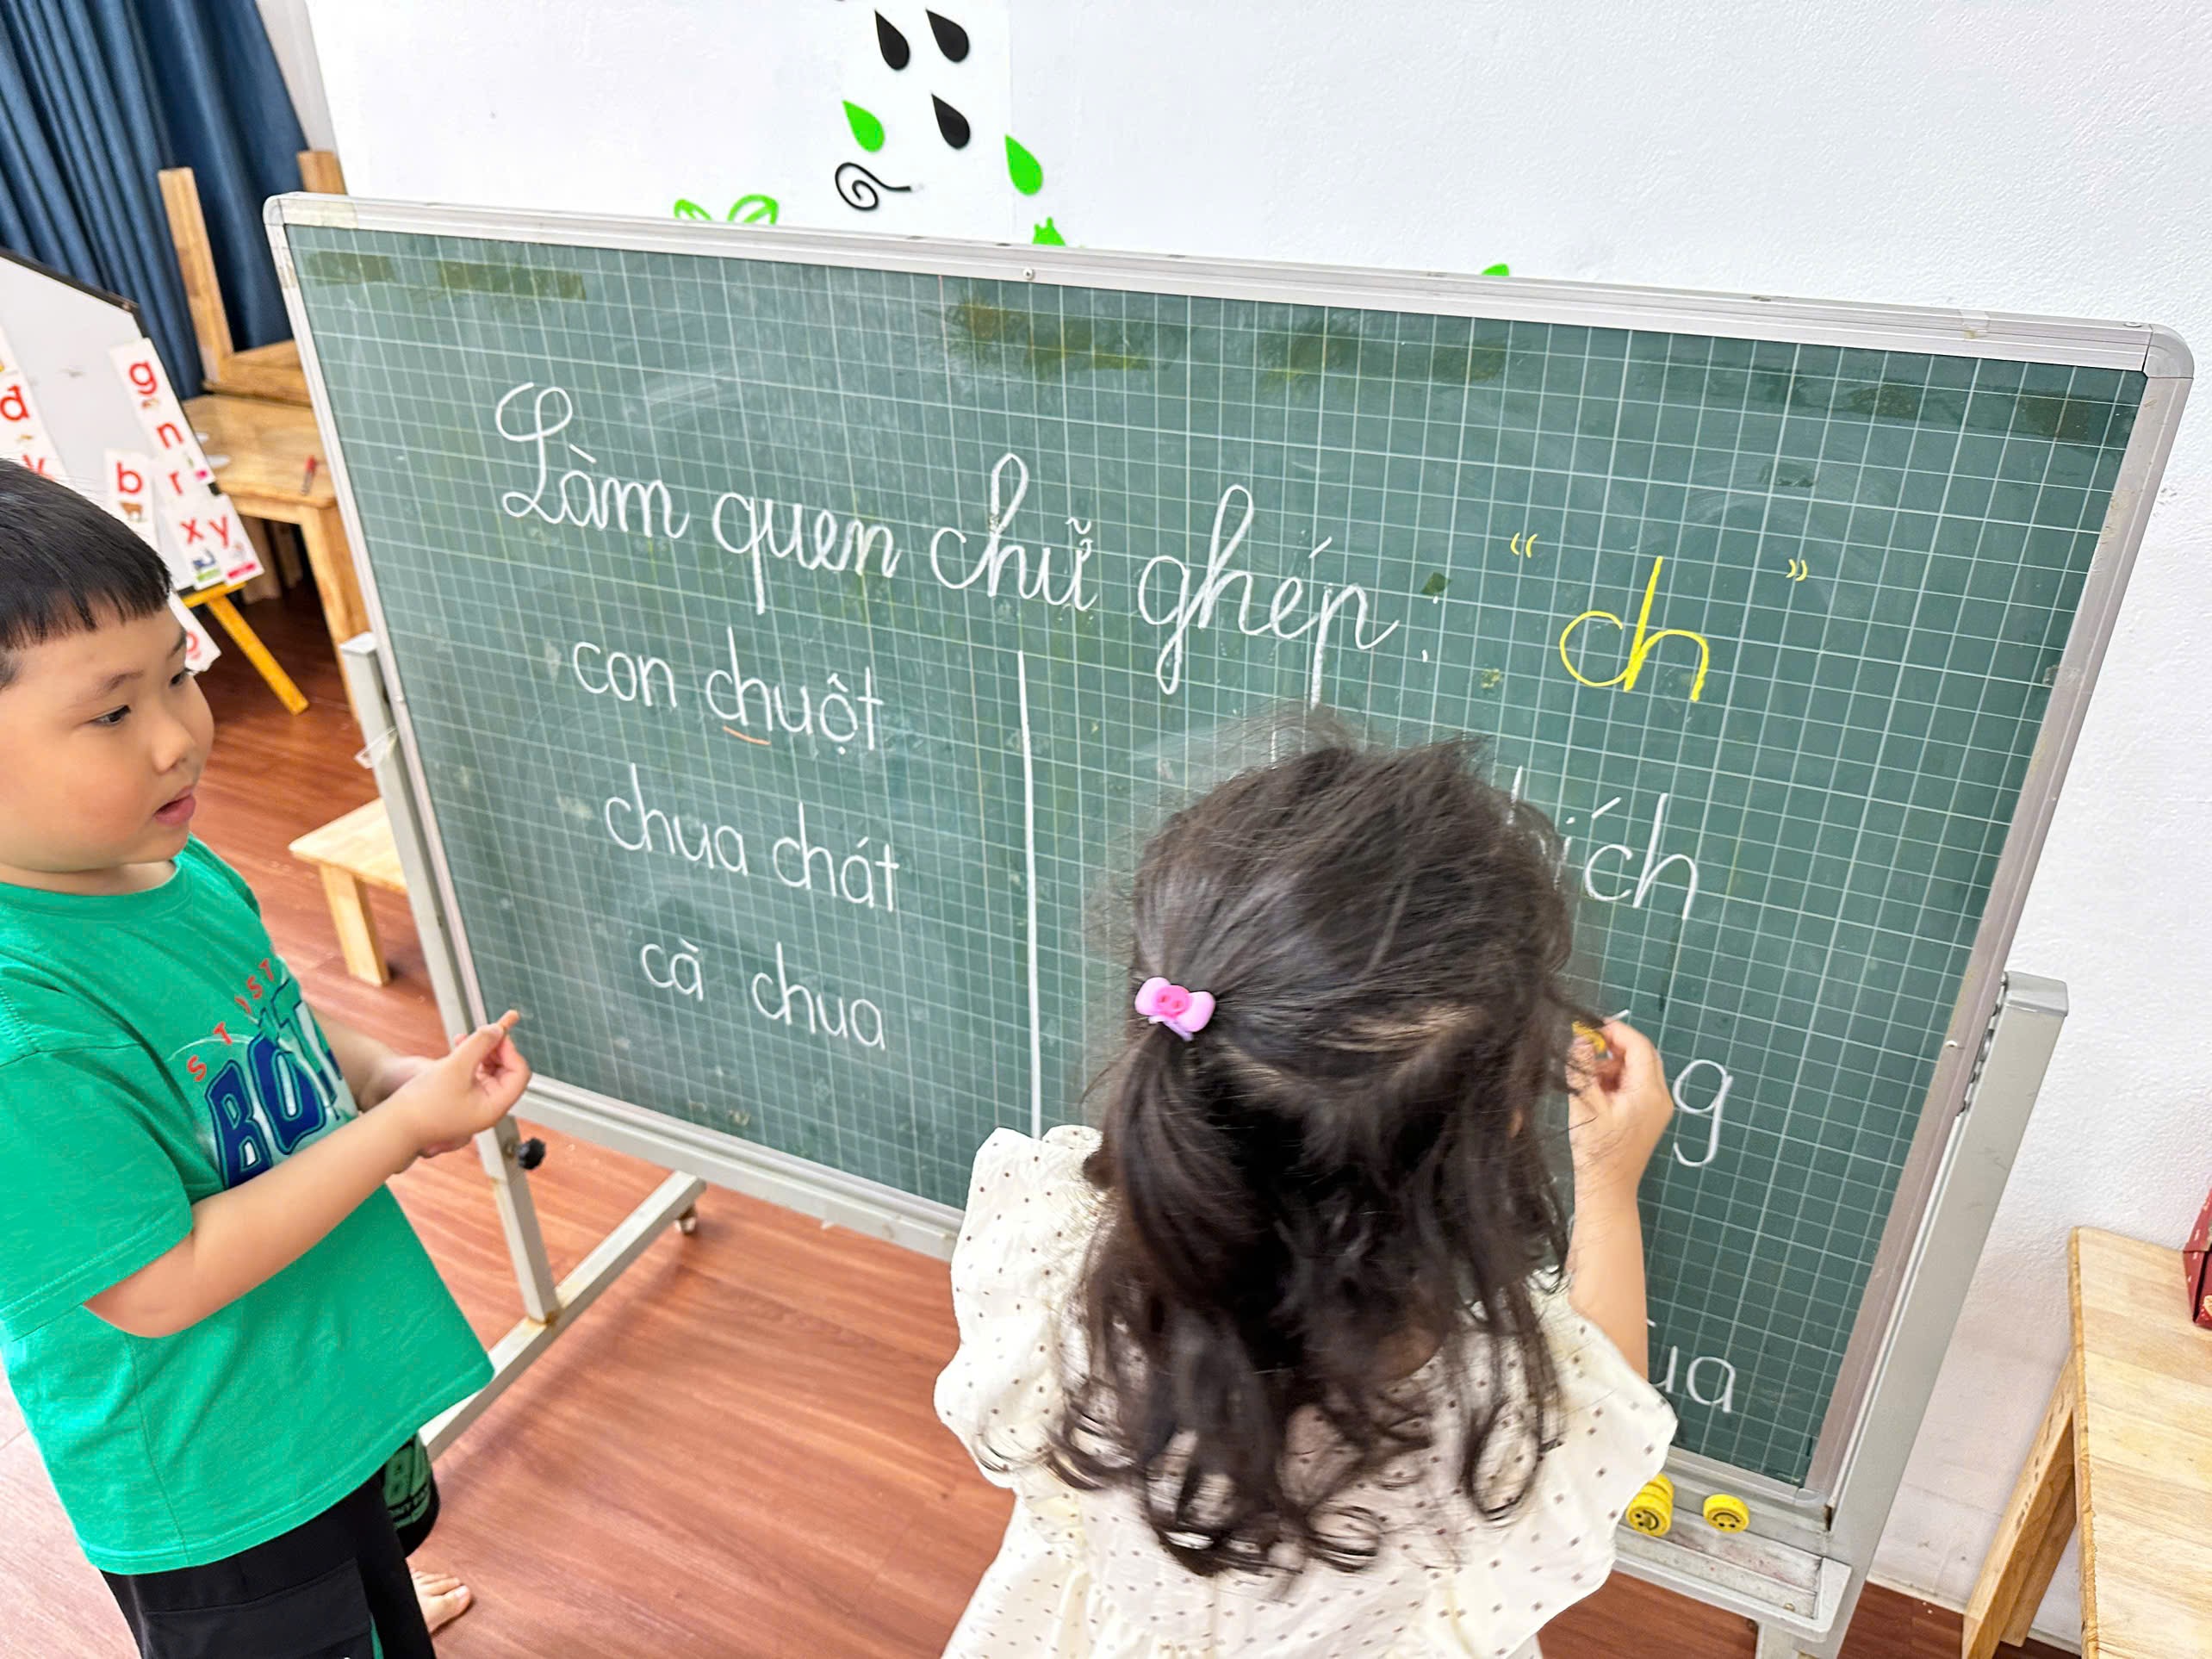 Làm quen chữ ghép: " ch "
con chuột
chua chát
cà chua
g
n
đ
b
r
x y